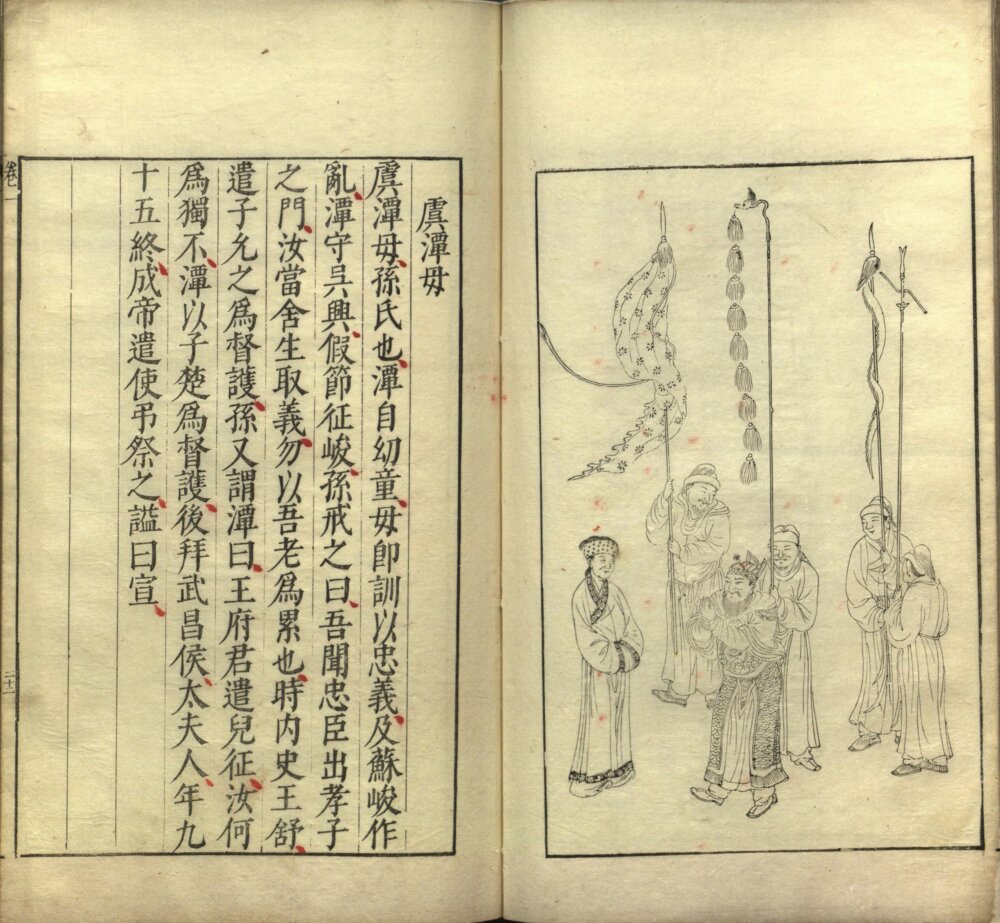 虞潭母
虞潭母孫氏也潭自幼童母卽訓以忠義及蘇峻作
亂潭守吳興假節征峻孫戒之曰吾聞忠臣出孝子
之門汝當舍生取義勿以吾老爲累也時内史王舒
遣子允之爲督護孫又謂潭曰王府君遣兒征汝何
爲獨不潭以子楚爲督護後拜武昌侯太夫人年九
十五終成帝遣使弔祭之謚曰宣
卷一
二十二